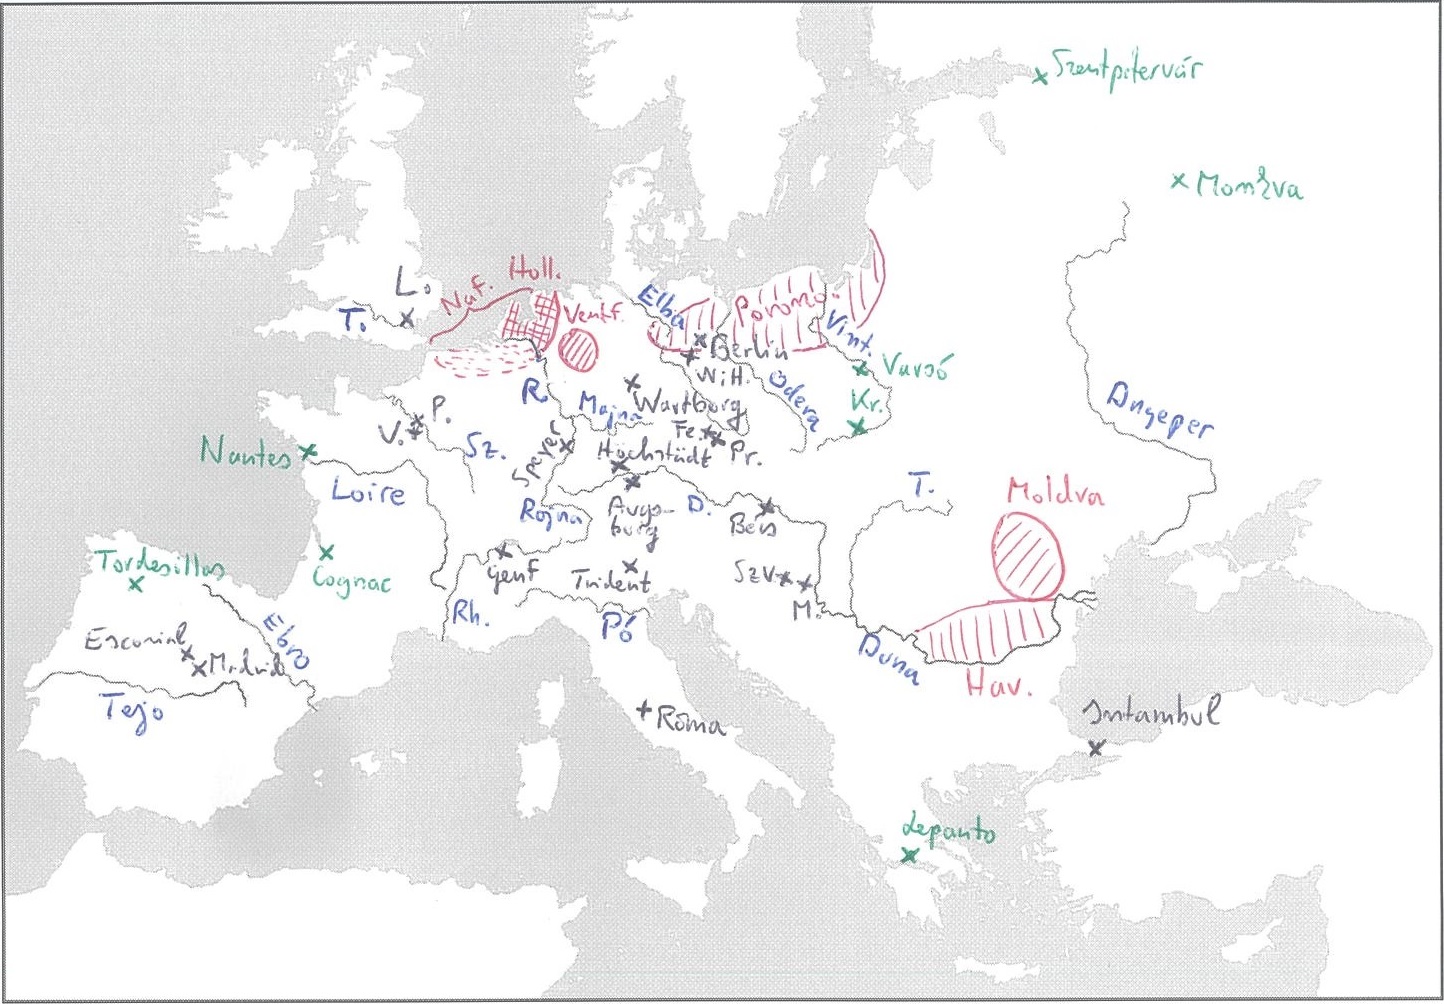 Szentpétervár
Moszkva
Holl.
Naf.
L.
T.
Elba
Poroszo.
Vestf.
Vint.
Berlin
Varsó
W.H.
Odera
R.
Majna
Wartborg
Kr.
P.
V.
Dnyeper
Fe.
Pr.
Nantes
Sz.
Speyer
Höchstädt
Loire
T.
Moldva
Rajna
Augs-
burg
D.
Bécs
Tordesillas
Cognac
Genf
Trident
SzV
M.
Rh.
Pó
Ebro
Escorial
Madrid
Duna
Hav.
Tejo
Róma
Isztambul
Lepanto